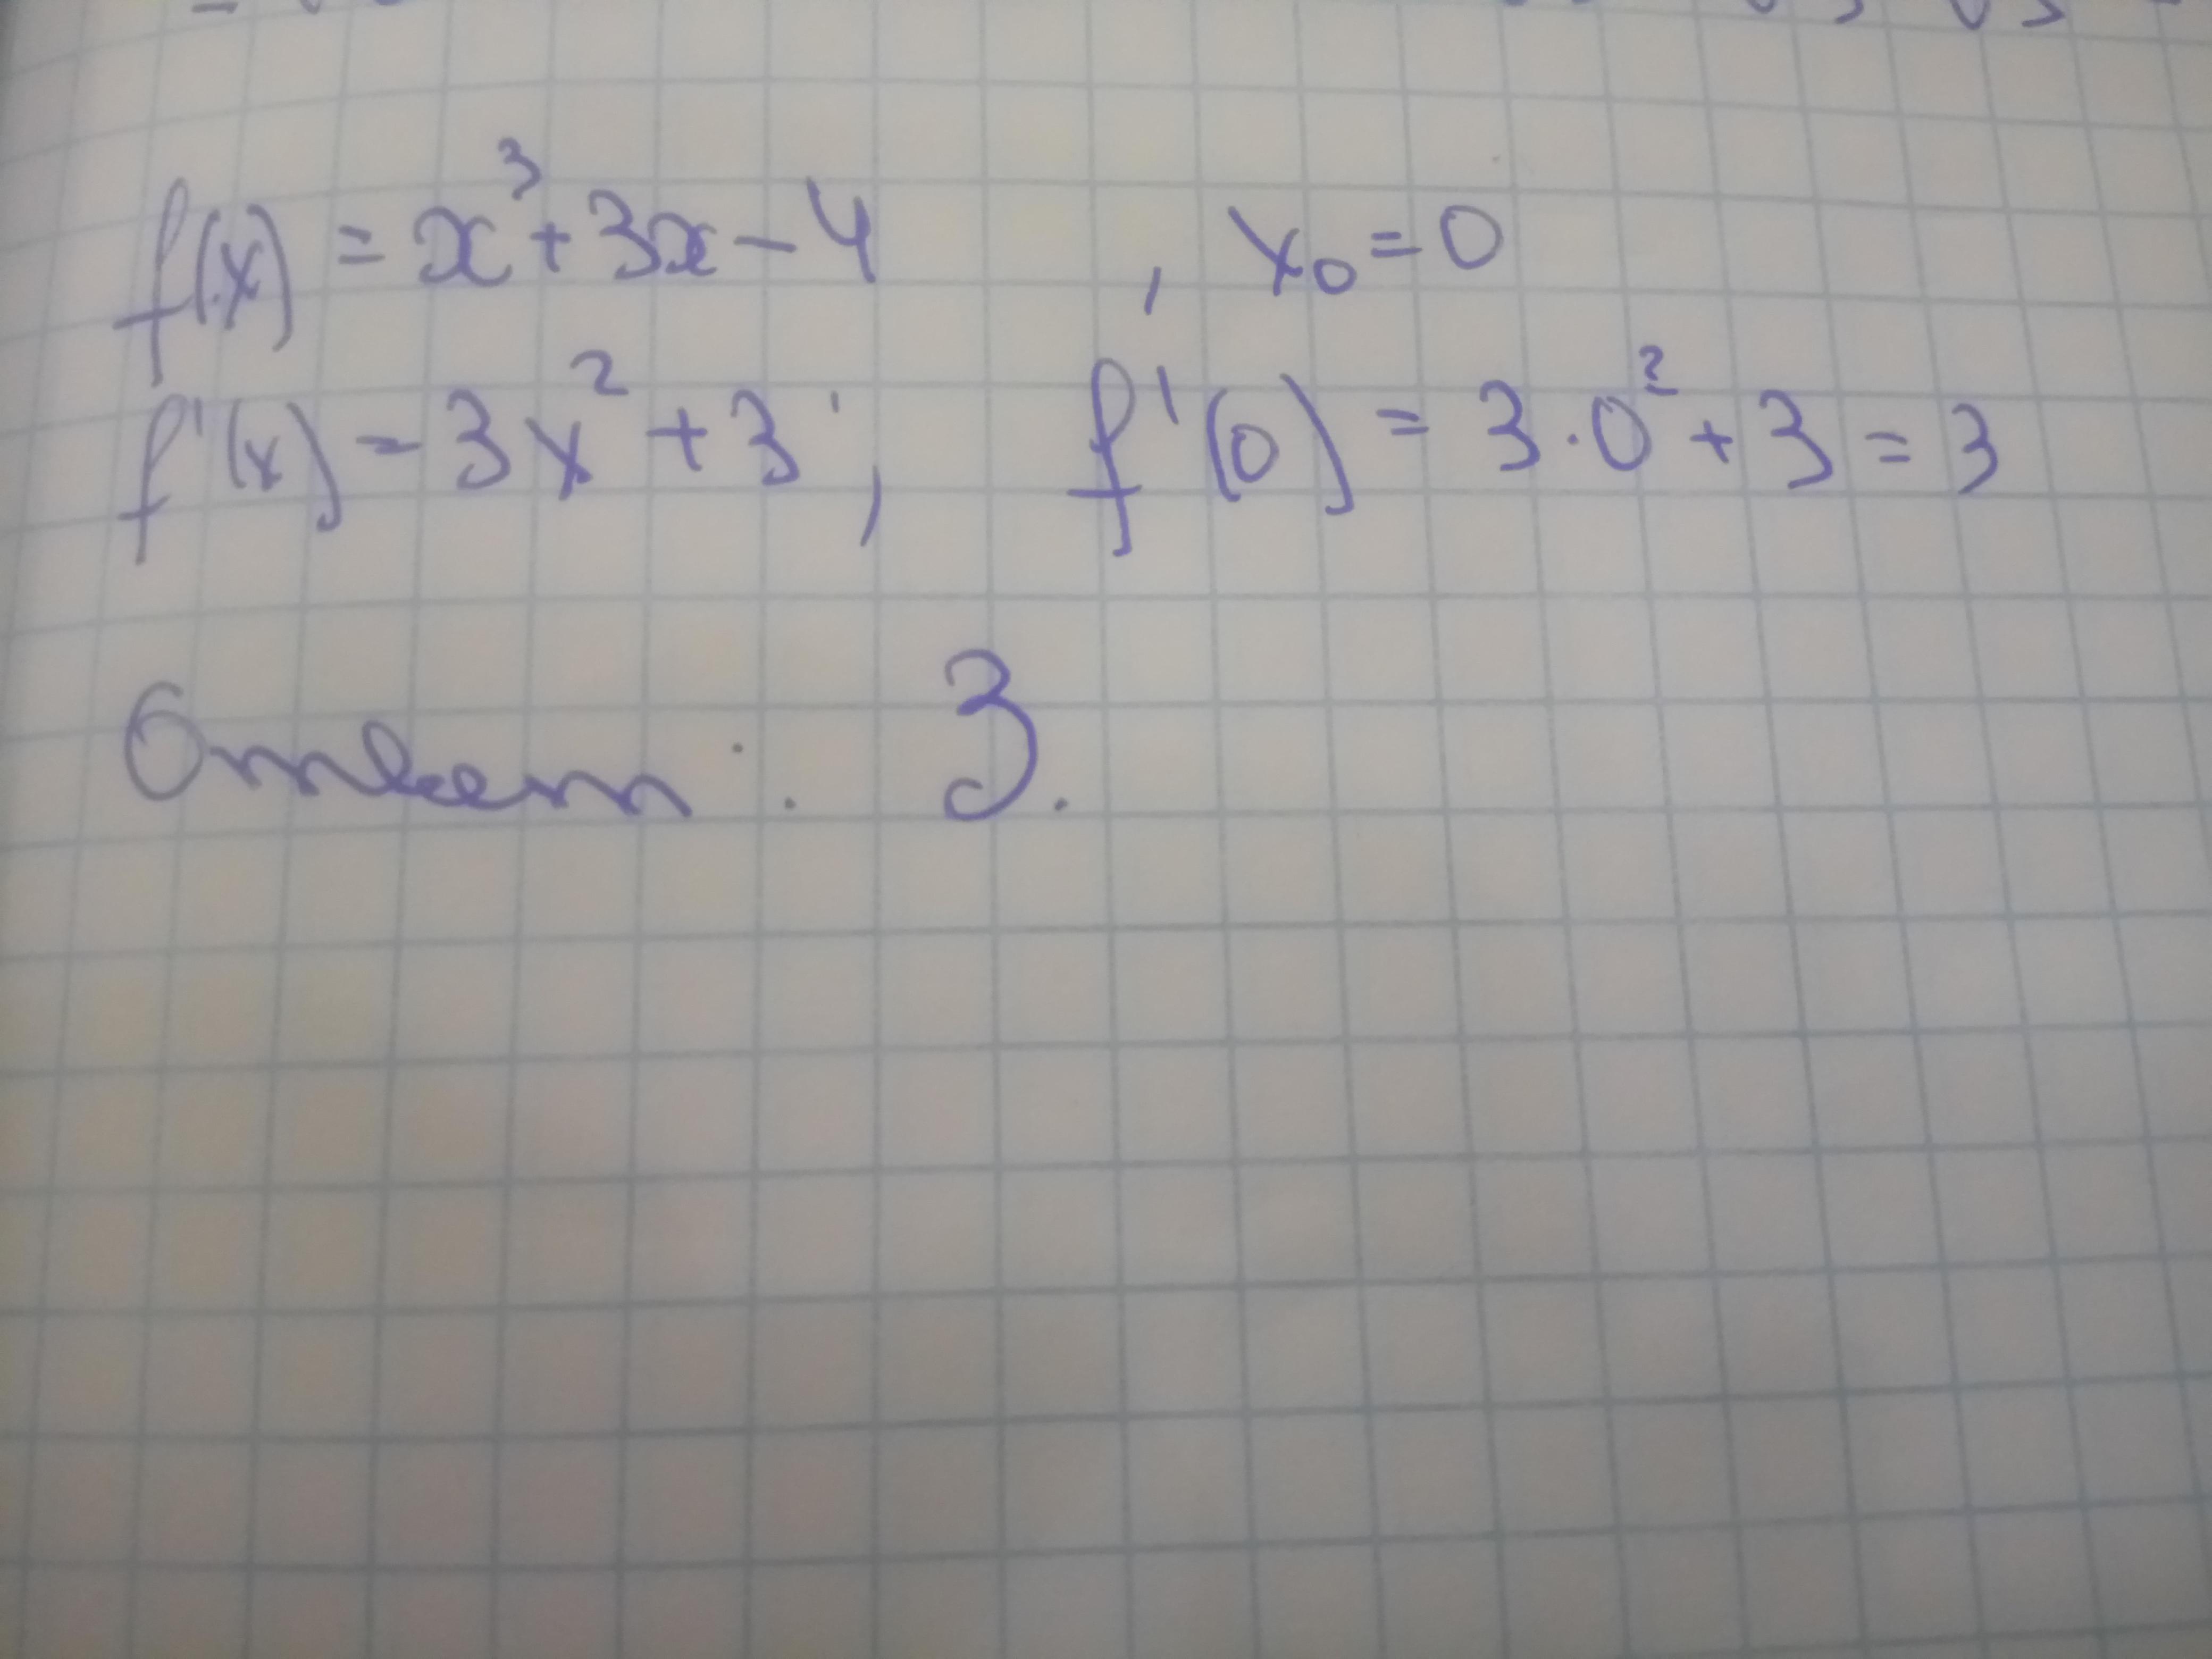 f(x) = x³ + 3x - 4 , x₀ = 0
f'(x) = 3x² + 3 ; f'(0) = 3 · 0² + 3 = 3
Ответ : 3.